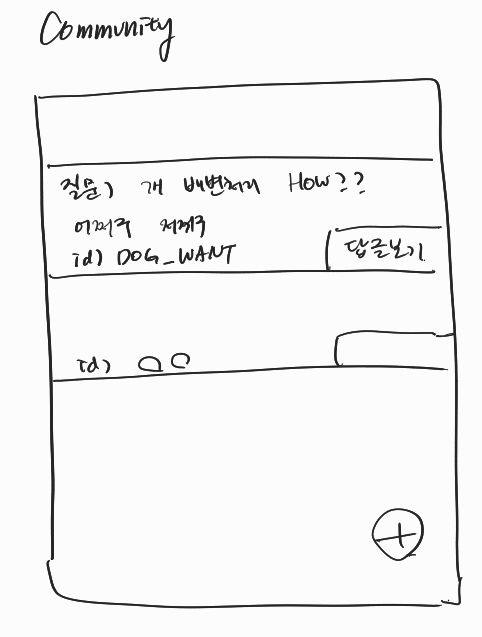 Community
질문) 개 배변처리 How??
어쩌구 저쩌구
id) DOG_WANT
답글보기
id) ㅇㅇ